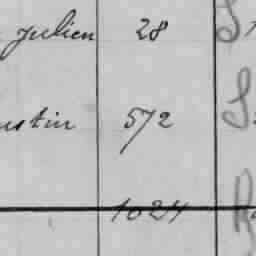 Julien 28 S
ustin 572 S
1024